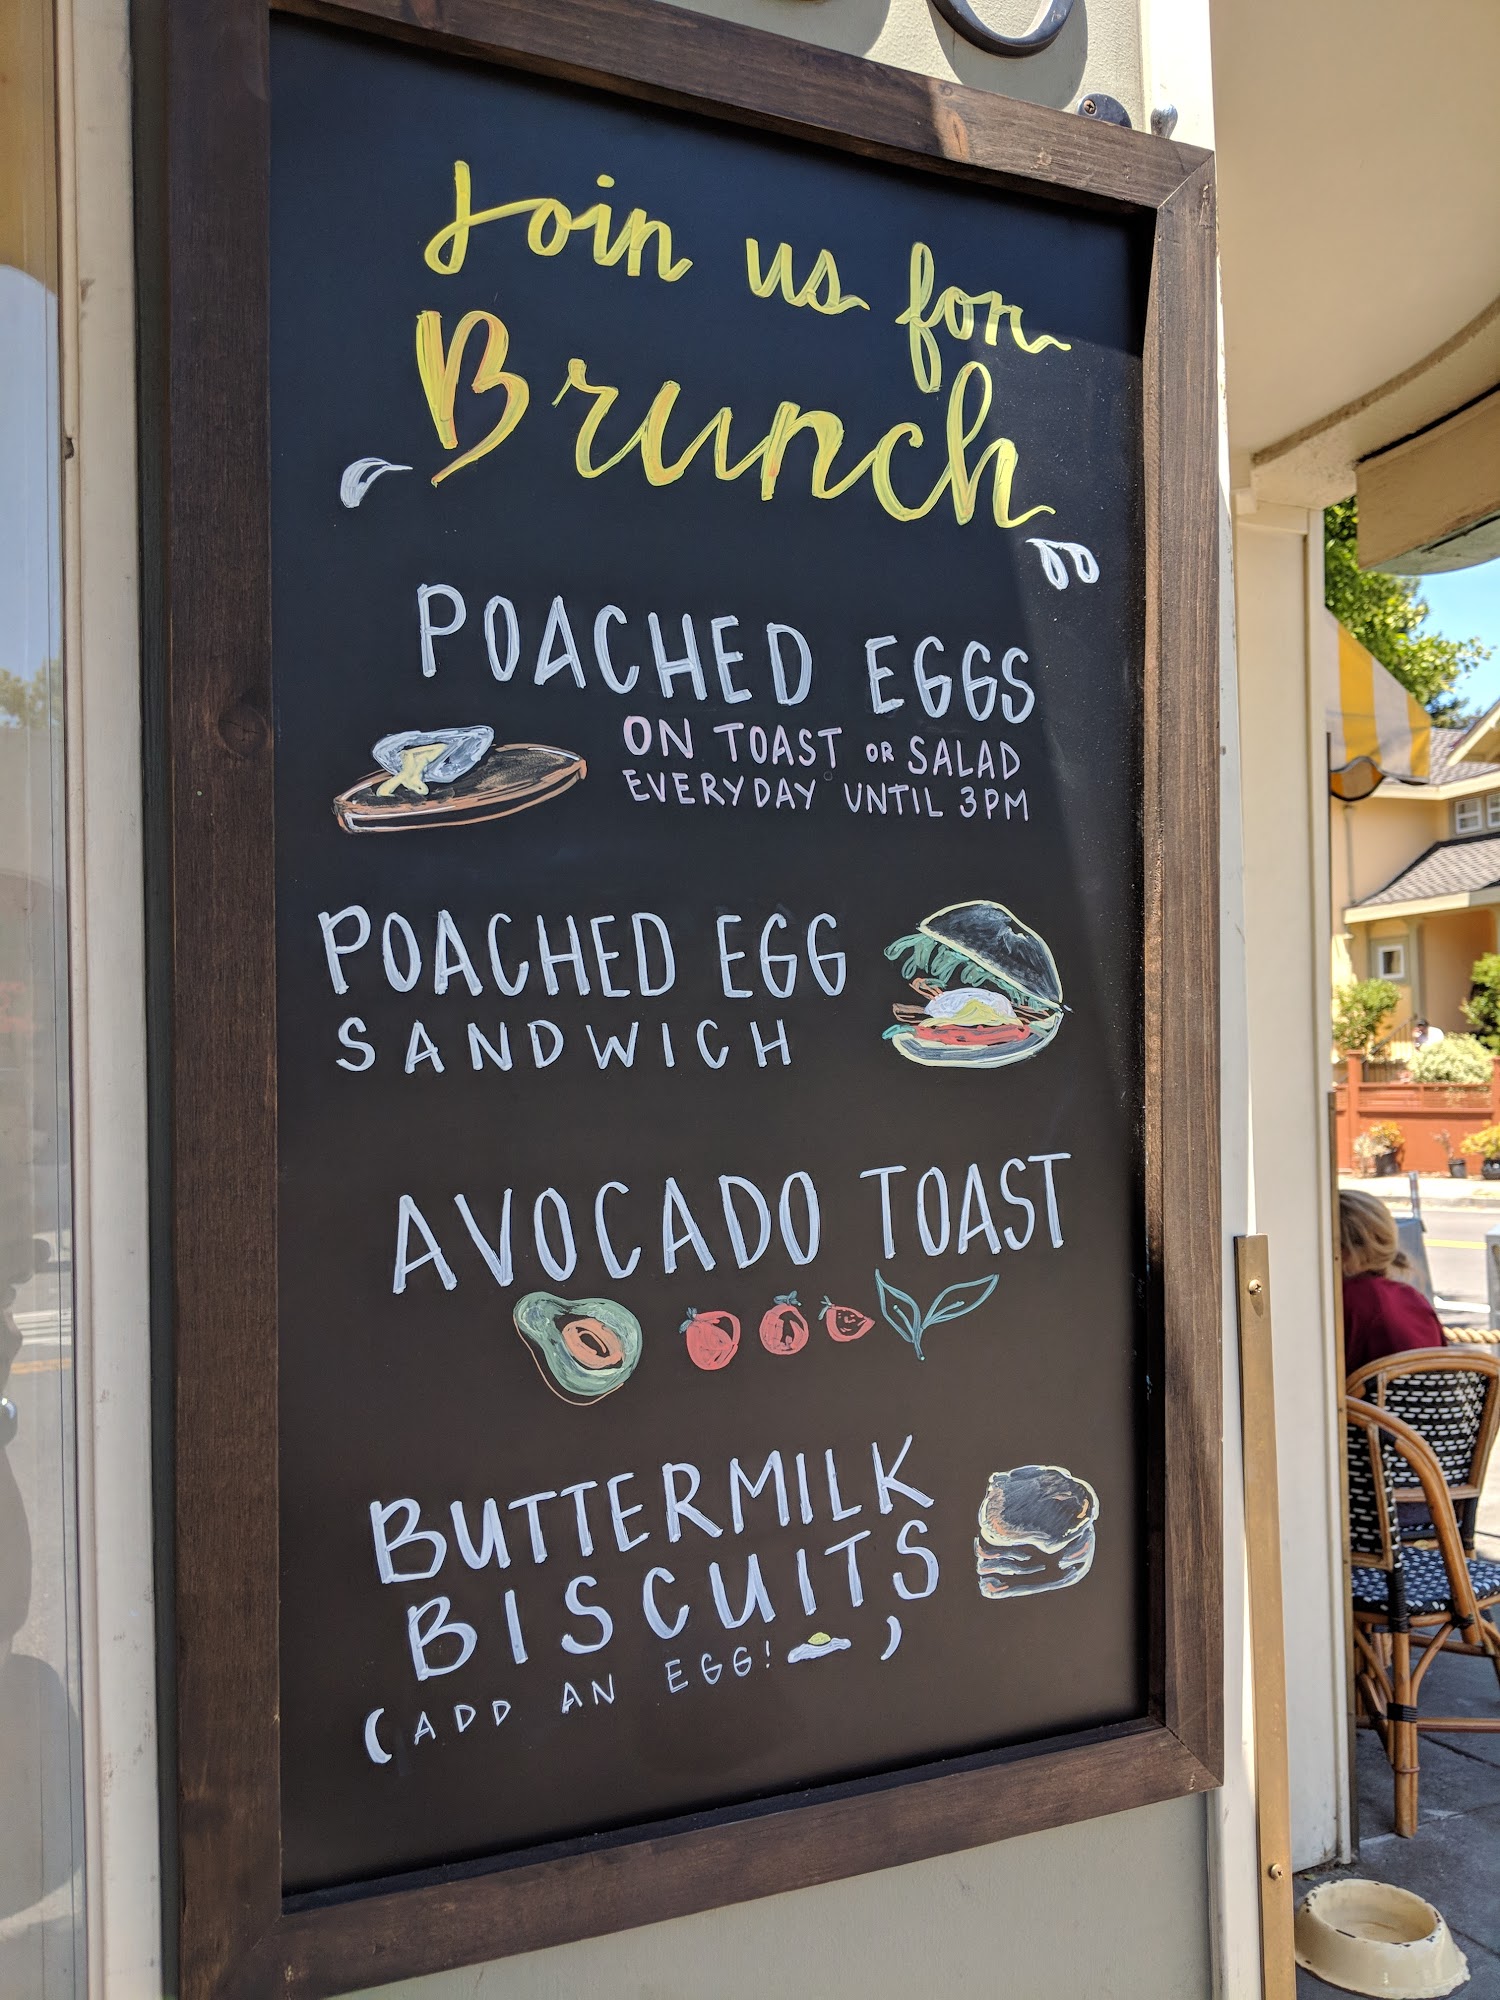 Join us for
Brunch
POACHED EGGS
ON TOAST OR SALAD
EVERYDAY UNTIL 3PM
POACHED EGG
SANDWICH
AVOCADO TOAST
BUTTERMILK
BISCUITS
(ADD AN EGG! )